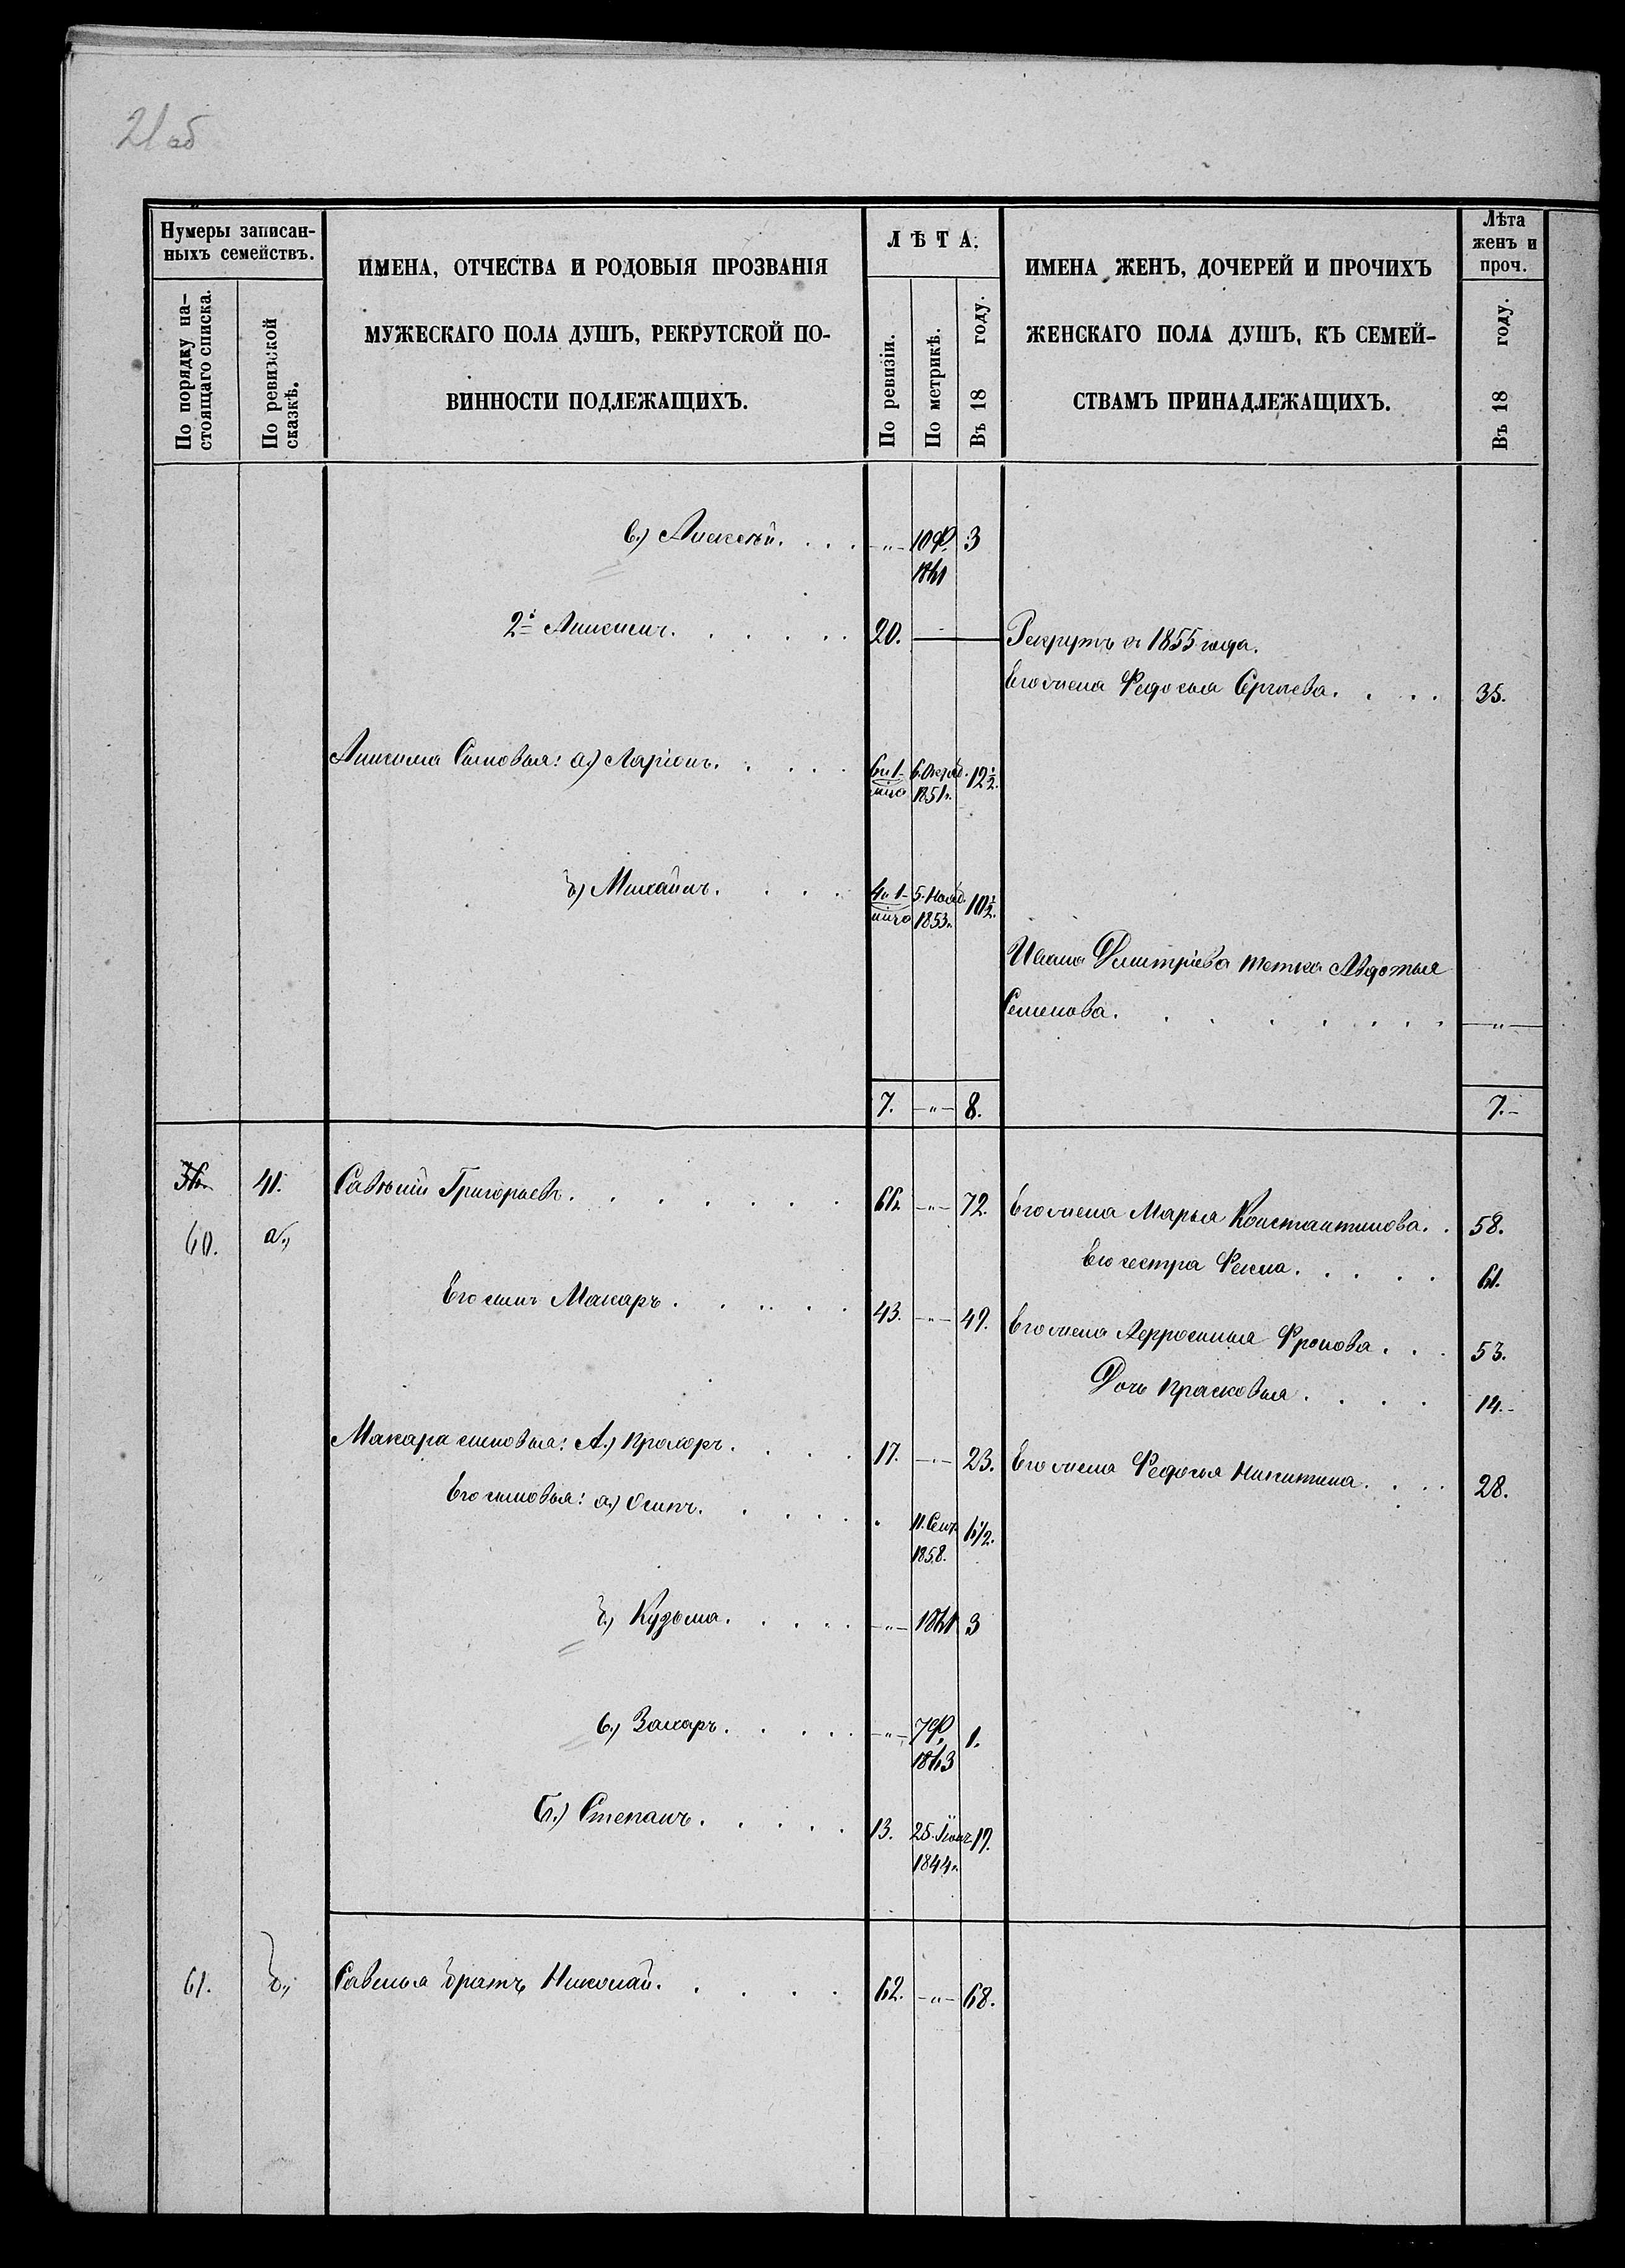 21 об
Нумеры записан-
ныхъ семействъ.
По порядку на-
стоящаго списка.
По ревизской
сказкѣ.
ИМЕНА, ОТЧЕСТВА И РОДОВЫЯ ПРОЗВАНІЯ
МУЖЕСКАГО ПОЛА ДУШЪ, РЕКРУТСКОЙ ПО-
ВИННОСТИ ПОДЛЕЖАЩИХЪ.
ЛѢТА.
По ревизіи.
По метрикѣ.
Въ 18 году.
ИМЕНА ЖЕНЪ, ДОЧЕРЕЙ И ПРОЧИХЪ
ЖЕНСКАГО ПОЛА ДУШЪ, КЪ СЕМЕЙ-
СТВАМЪ ПРИНАДЛЕЖАЩИХЪ.
Лѣта
женъ и
проч.
Въ 18 году.
в.) Алексѣй. . . . -"- 10 Ф. 3
1861
2й Аникинъ. . . . . . 20. Рекрутъ съ 1855 года.
Его жена Федосья Сергѣева. . . . 35.
Сыновья: а.) Ларіонъ. . . . . 6 и 1- 6. Октяб. 12 1/2.
1851г.
б) Михайлъ. . . . 4 и 1- 5. Нояб. 10 1/2.
1853г.
Ивана Дмитріева тетка Авдотья
Семенова. . . . . . . . . -"-
7. -"- 8. 7.-
36. 41. Савелій Григорьевъ. . . . . . . 66. -"- 72. Его жена Марья Константинова. . 58.
60. а.,
Его сестра Фекла. . . . . 61.
Его сынъ Макаръ . . . . . . 43. -"- 49. Его жена Фролова. . . 53.
Дочь Прасковья. . . . 14.-
Макара сыновья: А.) Прохоръ. . . . 17. -"- 23. Его жена Федосья Никитина. . . . 28.
Его сыновья: а.) Осипъ. . . . . . " 11. Сент. 6 1/2.
1858.
б.) Кузьма. . . . . -"- 1861 3
в.) Захаръ. . . . . -"- 7 Ф. 1.
1863
Б.) Степанъ. . . . . 13. 25. Іюня 19.
1844г.
61. б., Савелья братъ Николай. . . . . 62. -"- 68.